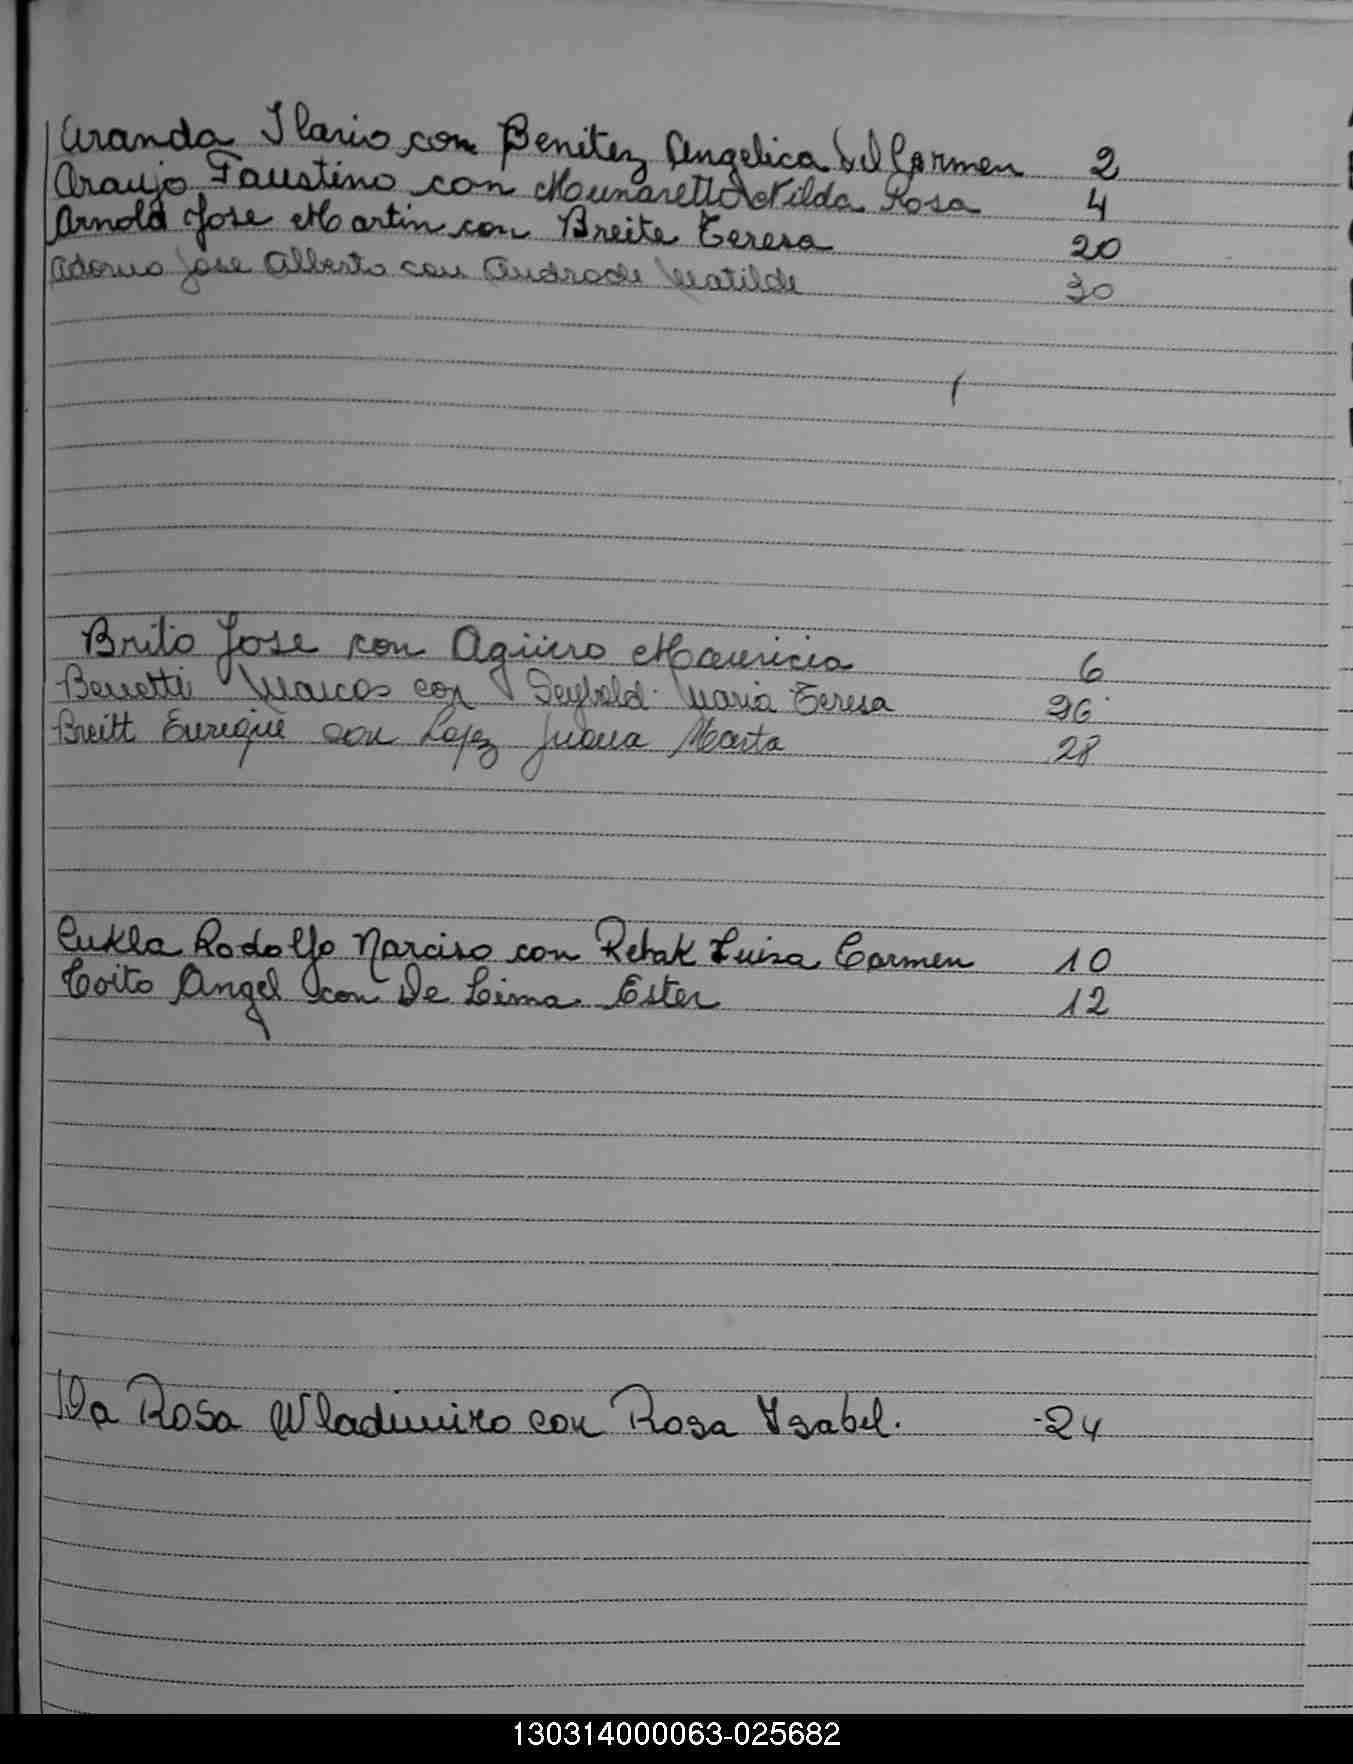 Aranda Ilario con Benitez Angelica del Carmen 2
Araujo Faustino con Munaretto Nilda Rosa 4
Arnold Jose Martin con Breite Teresa 20
Adorno Jose Alberto con Andrade Matilde 30
Brito Jose con Agüero Mauricia 6
Berretti Marcos con Seybold Maria Teresa 26
Breitt Enrique con Lopez Juana Marta 28
Cukla Rodolfo Narciso con Rebak Luisa Carmen 10
Coito Angel con De Lima Ester 12
Da Rosa Wladimiro con Rosa Ysabel. -24
130314000063-025682